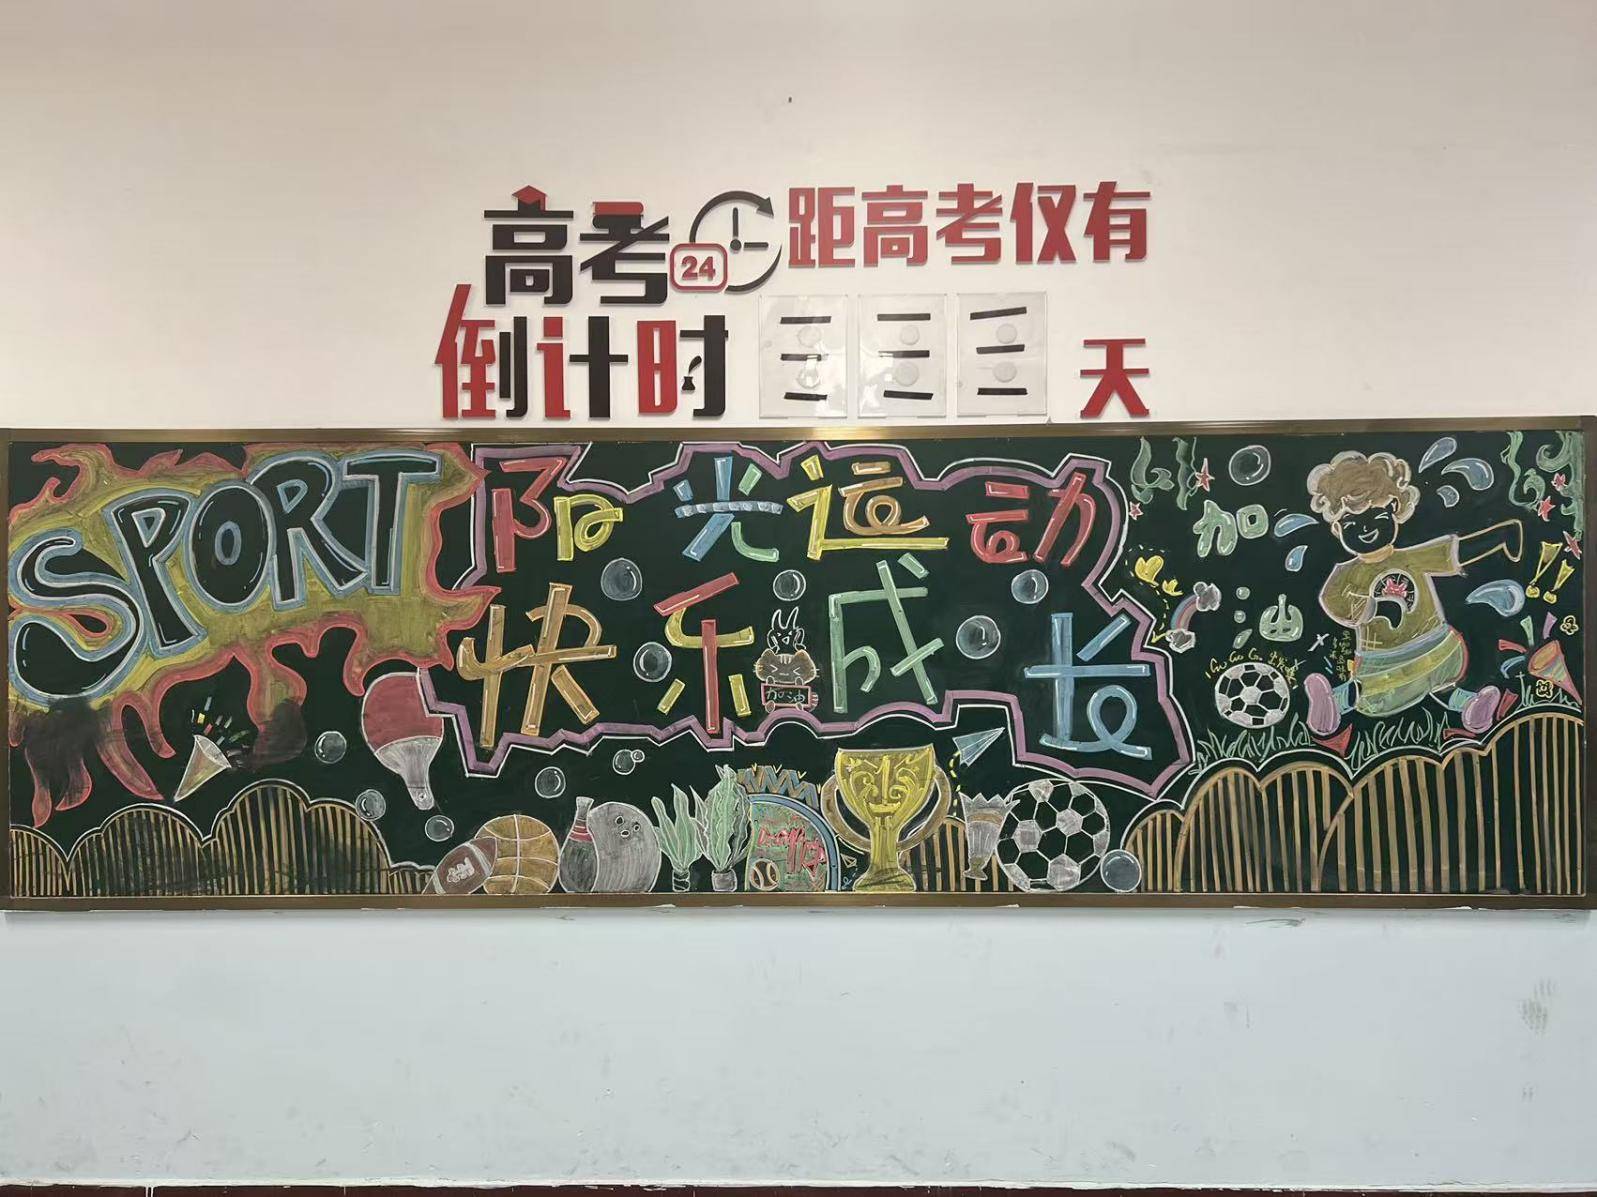 高考
24
距高考仅有
倒计时
天
SPORT
阳光运动
快乐成长
加油
加油
Go Go Go